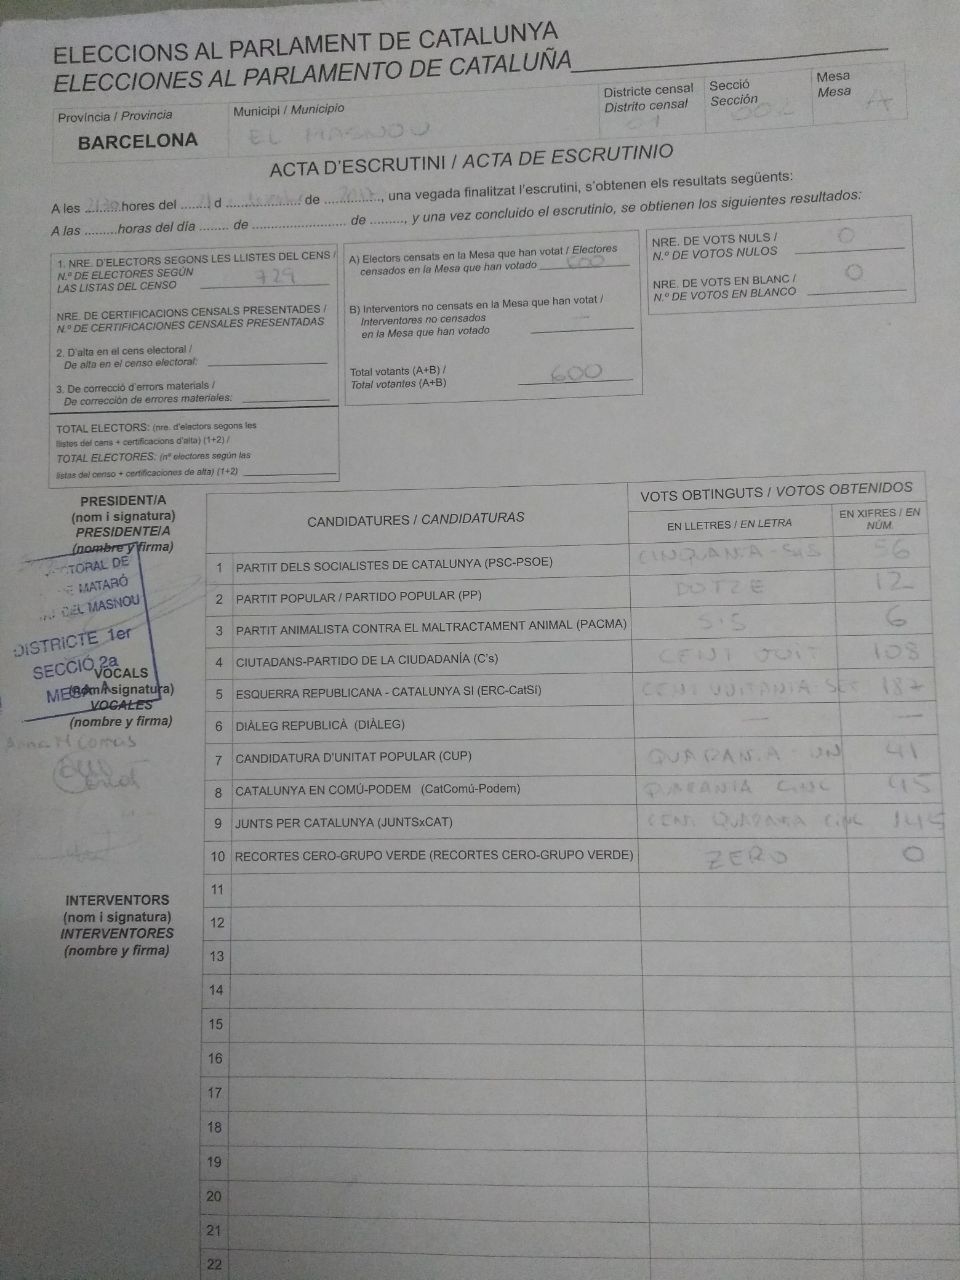 ELECCIONS AL PARLAMENT DE CATALUNYA
ELECCIONES AL PARLAMENTO DE CATALUÑA
Província / Provincia
BARCELONA
Municipi / Municipio
EL MASNOU
Districte censal
Distrito censal
01
Secció
Sección
002
Mesa
Mesa
A
ACTA D'ESCRUTINI / ACTA DE ESCRUTINIO
A les ......... hores del ........ d .................... de 2017, una vegada finalitzat l'escrutini, s'obtenen els resultats següents:
A las .........horas del día ........ de ........................ de ........., y una vez concluido el escrutinio, se obtienen los siguientes resultados:
1. NRE. D'ELECTORS SEGONS LES LLISTES DEL CENS /
N.º DE ELECTORES SEGÚN
LAS LISTAS DEL CENSO 729
NRE. DE CERTIFICACIONS CENSALS PRESENTADES /
N.º DE CERTIFICACIONES CENSALES PRESENTADAS
2. D'alta en el cens electoral /
De alta en el censo electoral:
3. De correcció d'errors materials /
De corrección de errores materiales:
TOTAL ELECTORS: (nre. d'electors segons les
llistes del cens + certificacions d'alta) (1+2) /
TOTAL ELECTORES: (nº electores según las
listas del censo + certificaciones de alta) (1+2)
A) Electors censats en la Mesa que han votat / Electores
censados en la Mesa que han votado 600
B) Interventors no censats en la Mesa que han votat /
Interventores no censados
en la Mesa que han votado —
Total votants (A+B) /
Total votantes (A+B) 600
NRE. DE VOTS NULS /
N.º DE VOTOS NULOS 0
NRE. DE VOTS EN BLANC /
N.º DE VOTOS EN BLANCO 0
PRESIDENT/A
(nom i signatura)
PRESIDENTE/A
(nombre y firma)
DE MATARÓ
DEL MASNOU
DISTRICTE 1er
SECCIÓ 2a
MESA A
VOCALS
(nom i signatura)
VOCALES
(nombre y firma)
INTERVENTORS
(nom i signatura)
INTERVENTORES
(nombre y firma)
CANDIDATURES / CANDIDATURAS
VOTS OBTINGUTS / VOTOS OBTENIDOS
EN LLETRES / EN LETRA
EN XIFRES / EN NÚM.
1 PARTIT DELS SOCIALISTES DE CATALUNYA (PSC-PSOE) CINQUANTA-SIS 56
2 PARTIT POPULAR / PARTIDO POPULAR (PP) DOTZE 12
3 PARTIT ANIMALISTA CONTRA EL MALTRACTAMENT ANIMAL (PACMA) SIS 6
4 CIUTADANS-PARTIDO DE LA CIUDADANÍA (C's) CENT VUIT 108
5 ESQUERRA REPUBLICANA - CATALUNYA SI (ERC-CatSí) CENT VUITANTA-SET 187
6 DIÀLEG REPUBLICÀ (DIÀLEG) — —
7 CANDIDATURA D'UNITAT POPULAR (CUP) QUARANTA-UN 41
8 CATALUNYA EN COMÚ-PODEM (CatComú-Podem) QUARANTA CINC 45
9 JUNTS PER CATALUNYA (JUNTSxCAT) CENT QUARANTA CINC 145
10 RECORTES CERO-GRUPO VERDE (RECORTES CERO-GRUPO VERDE) ZERO 0
11
12
13
14
15
16
17
18
19
20
21
22